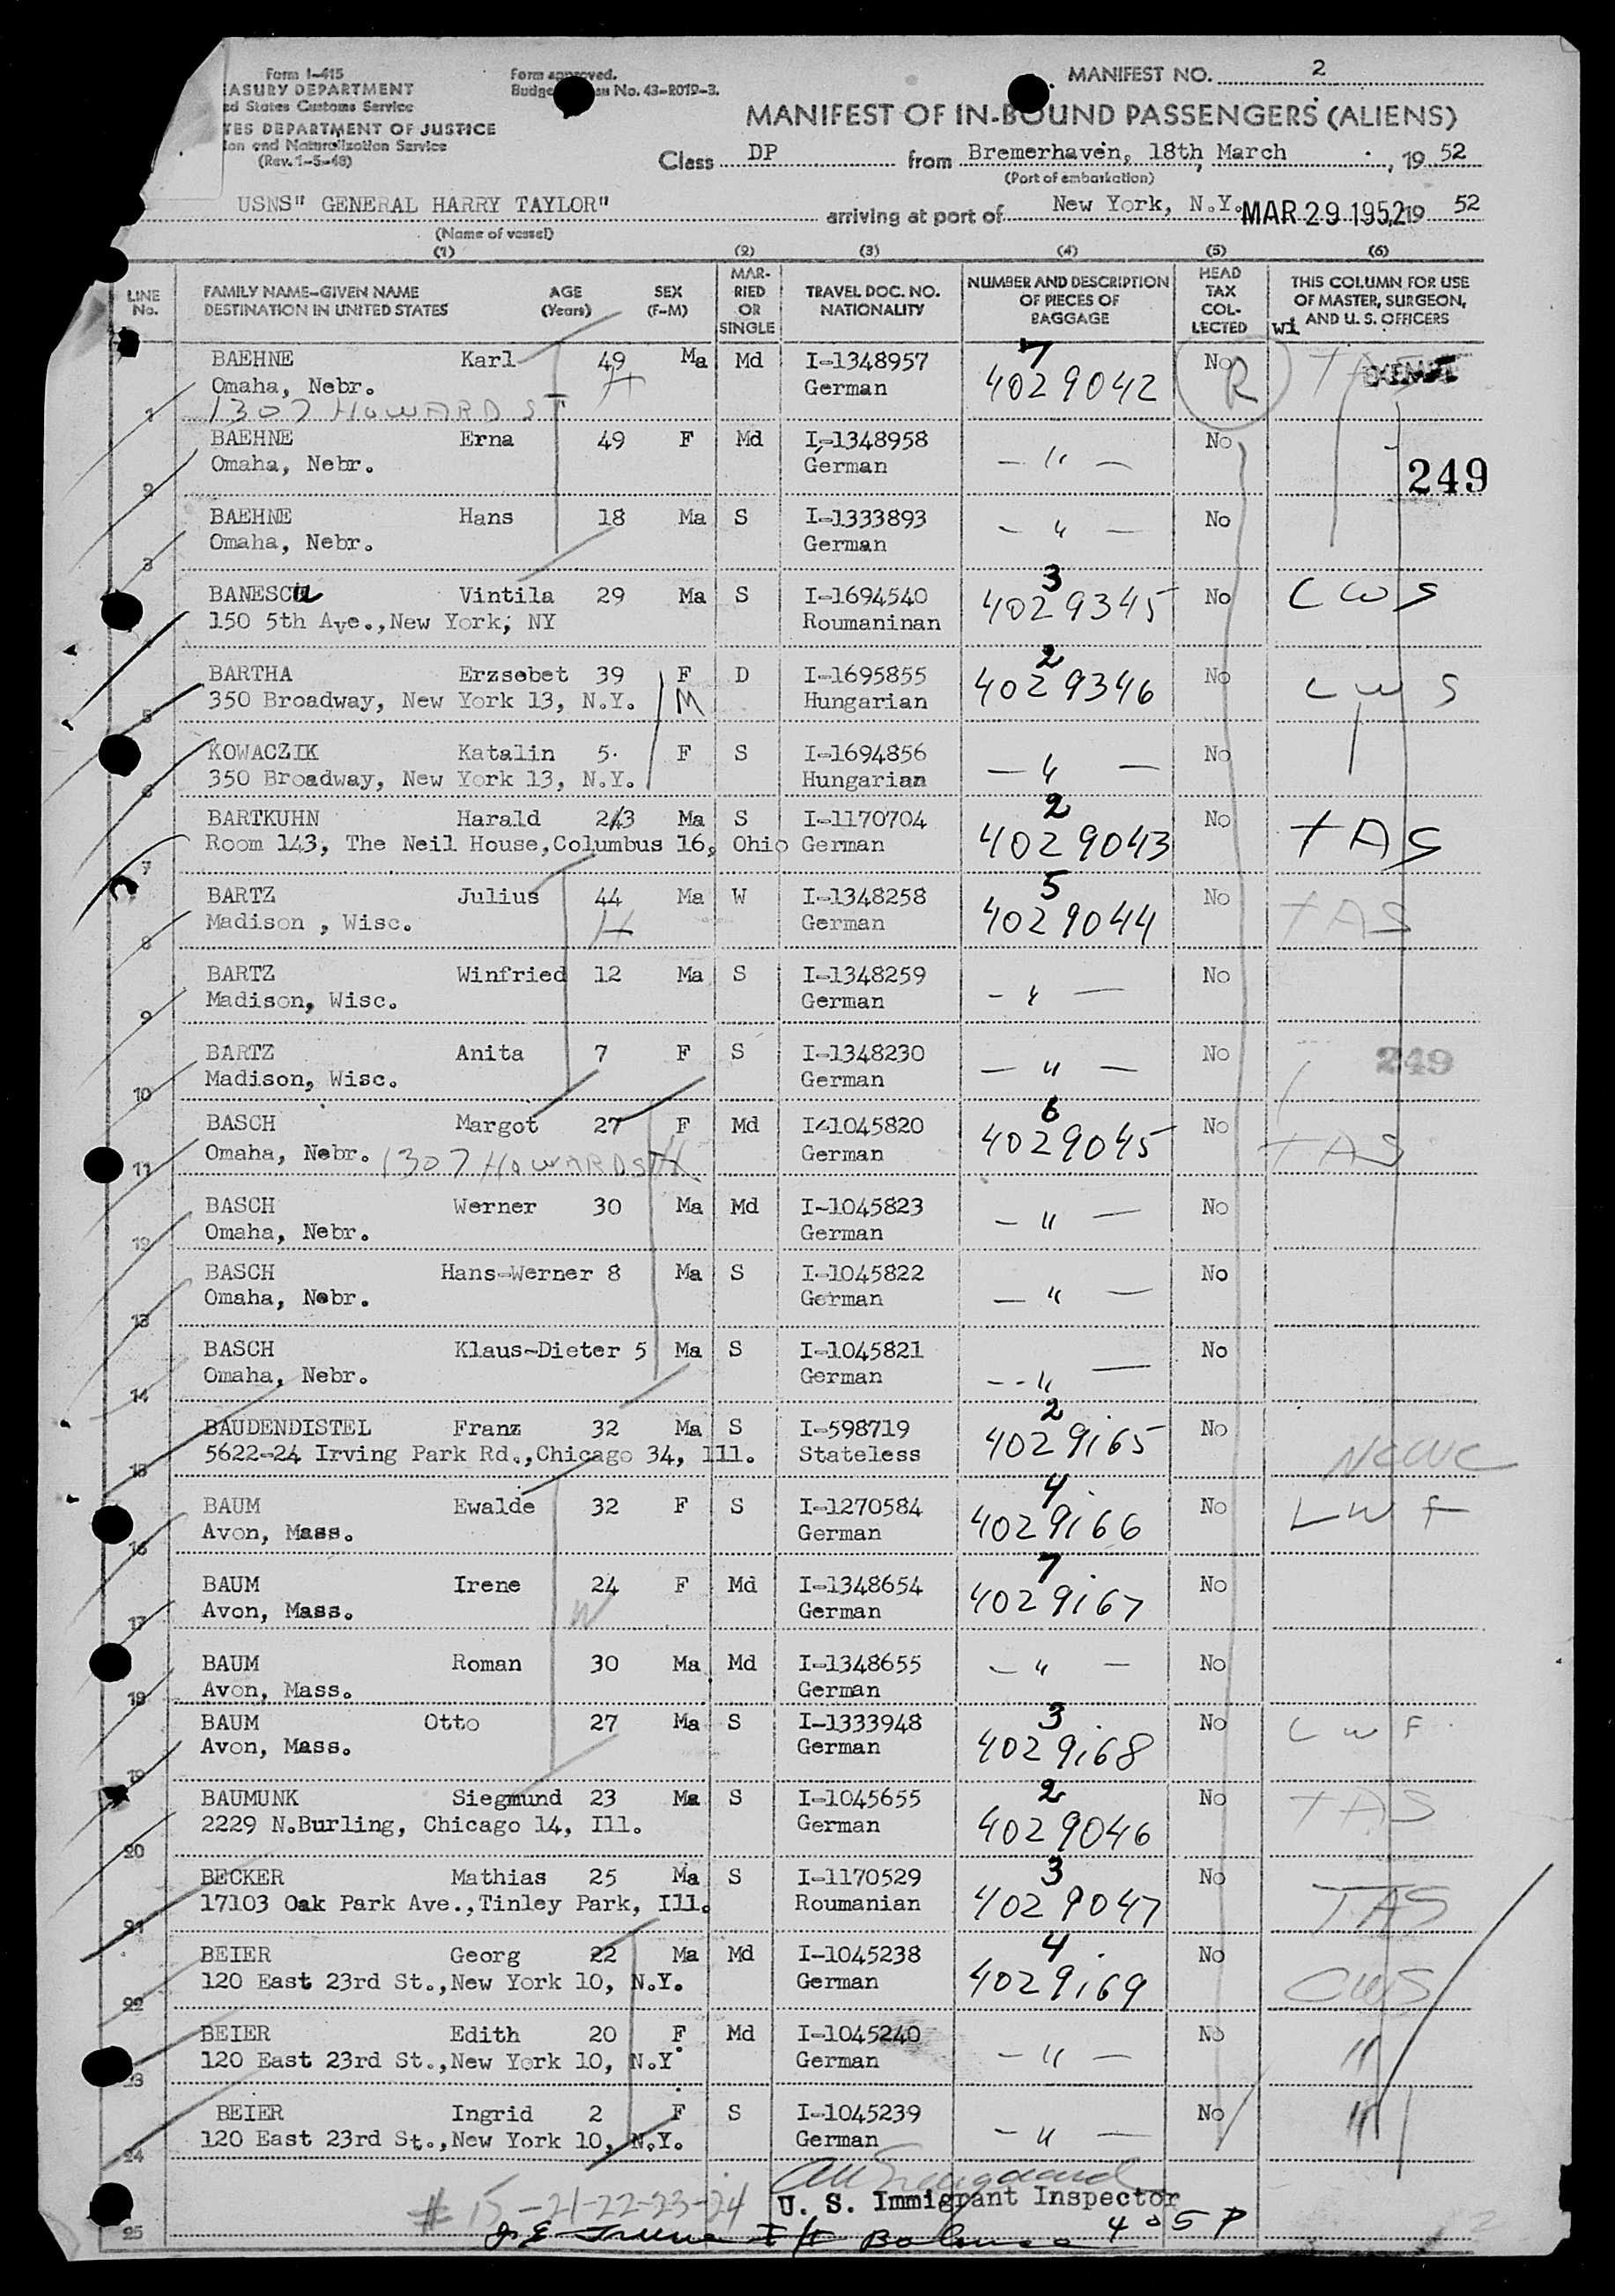 Form I-415
ASURY DEPARTMENT
ed States Customs Service
TES DEPARTMENT OF JUSTICE
ion and Naturalization Service
(Rev. 1-5-48)
Form approved.
Budge au No. 43-R019-3.
MANIFEST NO. 2
MANIFEST OF IN-BOUND PASSENGERS (ALIENS)
Class DP from Bremerhaven, 18th, March, 19 52
(Port of embarkation)
USNS" GENERAL HARRY TAYLOR" arriving at port of New York, N.Y. MAR 29 1952, 19 52
(Name of vessel)
(1) (2) (3) (4) (5) (6)
LINE No.
FAMILY NAME-GIVEN NAME
DESTINATION IN UNITED STATES
AGE (Years)
SEX (F-M)
MARRIED OR SINGLE
TRAVEL DOC. NO.
NATIONALITY
NUMBER AND DESCRIPTION OF PIECES OF BAGGAGE
HEAD TAX COLLECTED
THIS COLUMN FOR USE OF MASTER, SURGEON, AND U. S. OFFICERS
BAEHNE Karl 49 Ma Md I-1348957 7 No R TAS EXEMPT
Omaha, Nebr. H German 4029042
1 1307 HOWARD ST
BAEHNE Erna 49 F Md I-1348958 — " — No
Omaha, Nebr. German 249
2
BAEHNE Hans 18 Ma S I-1333893 — " — No
Omaha, Nebr. German
3
BANESCu Vintila 29 Ma S I-1694540 3 4029345 No CWS
150 5th Ave.,New York, NY Roumaninan
BARTHA Erzsebet 39 F D I-1695855 2 4029346 No CWS
5 350 Broadway, New York 13, N.Y. M Hungarian
KOWACZIK Katalin 5. F S I-1694856 — " — No
6 350 Broadway, New York 13, N.Y. Hungarian
BARTKUHN Harald 243 Ma S I-1170704 2 No TAS
7 Room 143, The Neil House,Columbus 16, Ohio German 4029043
BARTZ Julius 44 Ma W I-1348258 5 No TAS
8 Madison , Wisc. H German 4029044
BARTZ Winfried 12 Ma S I-1348259 - " — No
9 Madison, Wisc. German
BARTZ Anita 7 F S I-1348230 — " — No 249
10 Madison, Wisc. German
BASCH Margot 27 F Md I-1045820 6 4029045 No TAS
11 Omaha, Nebr. 1307 HOWARD ST H German
BASCH Werner 30 Ma Md I-1045823 — " — No
12 Omaha, Nebr. German
BASCH Hans-Werner 8 Ma S I-1045822 — " — No
13 Omaha, Nebr. German
BASCH Klaus-Dieter 5 Ma S I-1045821 — " — No
14 Omaha, Nebr. German
BAUDENDISTEL Franz 32 Ma S I-598719 2 4029165 No
15 5622-24 Irving Park Rd.,Chicago 34, Ill. Stateless NCWC
BAUM Ewalde 32 F S I-1270584 4 No LWF
16 Avon, Mass. German 4029166
BAUM Irene 24 F Md I-1348654 7 No
17 Avon, Mass. W German 4029167
BAUM Roman 30 Ma Md I-1348655 — " — No
18 Avon, Mass. German
BAUM Otto 27 Ma S I-1333948 3 No LWF
19 Avon, Mass. German 4029168
BAUMUNK Siegmund 23 Ma S I-1045655 2 No TAS
20 2229 N.Burling, Chicago 14, Ill. German 4029046
BECKER Mathias 25 Ma S I-1170529 3 No TAS
21 17103 Oak Park Ave.,Tinley Park, Ill. Roumanian 4029047
BEIER Georg 22 Ma Md I-1045238 4 No CWS
22 120 East 23rd St.,New York 10, N.Y. German 4029169
BEIER Edith 20 F Md I-1045240 — " — No "
23 120 East 23rd St.,New York 10, N.Y. German
BEIER Ingrid 2 F S I-1045239 — " — No "
24 120 East 23rd St.,New York 10, N.Y. German
U. S. Immigrant Inspector
# 15-21-22-23-24
25 Balance 405 P